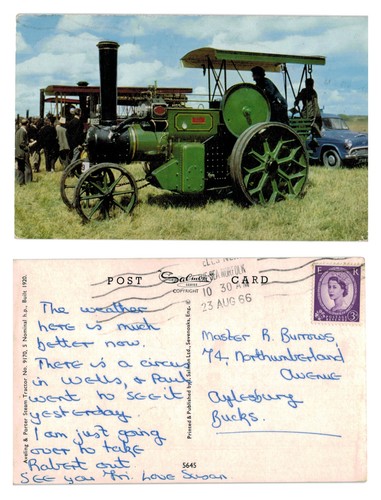 POST Salmon CARD
SERIES
COPYRIGHT
Aveling & Porter Steam Tractor No. 9170, 5 Nominal h.p., Built 1920.
The weather
here is much
better now.
There is a circus
in Wells, & Paul
went to see it
yesterday.
I am just going
over to take
Robert out.
SEE YOU Fri. Love Susan
5645
Printed & Published by J. Salmon Ltd., Sevenoaks, Eng. ©
NORFOLK
10 30 AM
23 AUG 66
E R
3D
Master R. Burrows
74, Northumberland
Avenue
Aylesbury
Bucks.